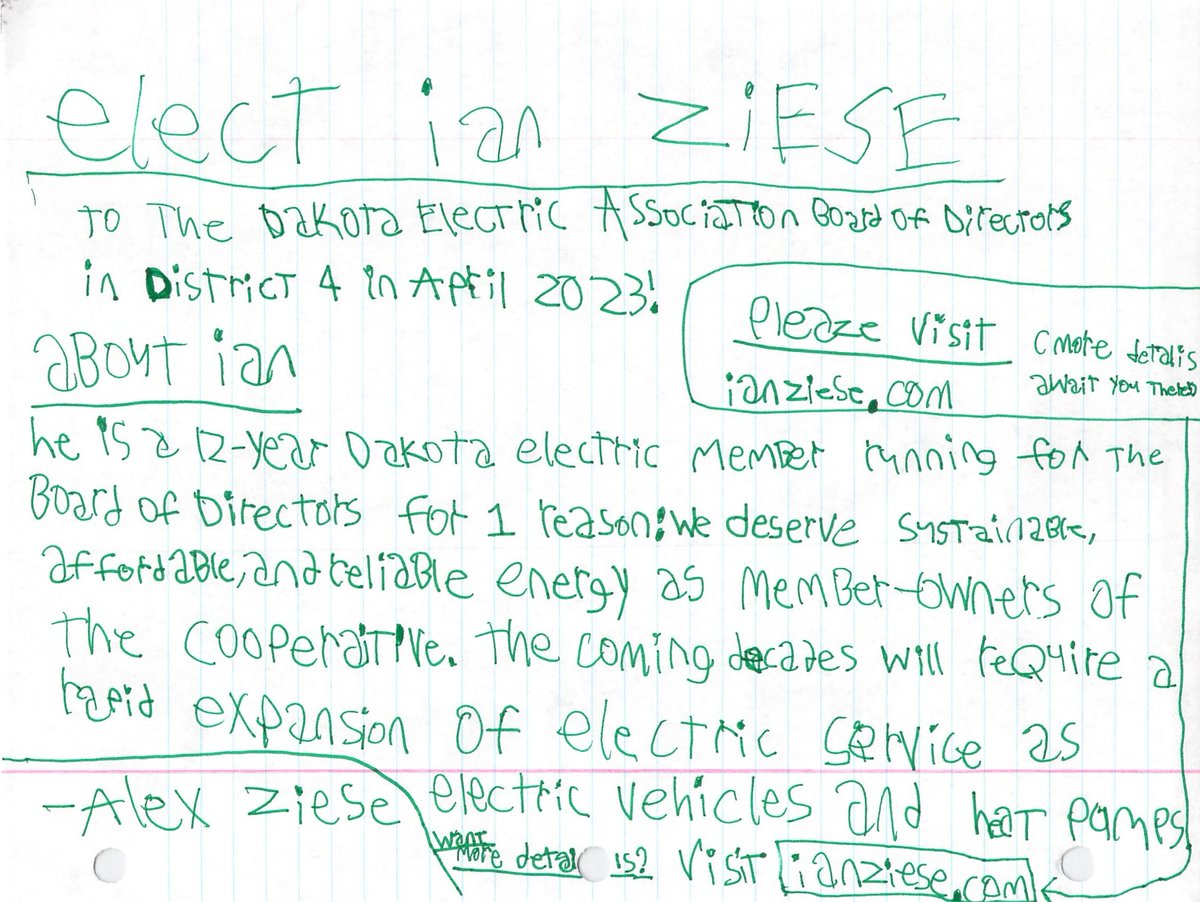 elect ian ZiESE
To The Dakota Electric Association Board of Directors
in District 4 in April 2023!
Pleaze visit
ianziese.com
(more detalis
await you there)
about ian
he is a 12-year Dakota electric member running for the
Board of Directors for 1 reason: we deserve sustainable,
affordable, and reliable energy as member-owners of
the cooperative. the coming decades will require a
rapid expansion of electric service as
electric vehicles and heat pumps
-Alex Ziese
want
more details?
visit ianziese.com